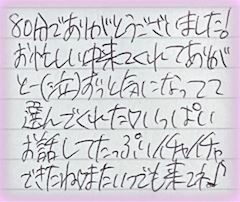 80分でありがとうございました!
お忙しい中来てくれてありが
とー(泣)ずっと気になってて
選んでくれたりいっぱい
お話してたっぷりイチャイチャ
できたねまたいつでも来てネ♪